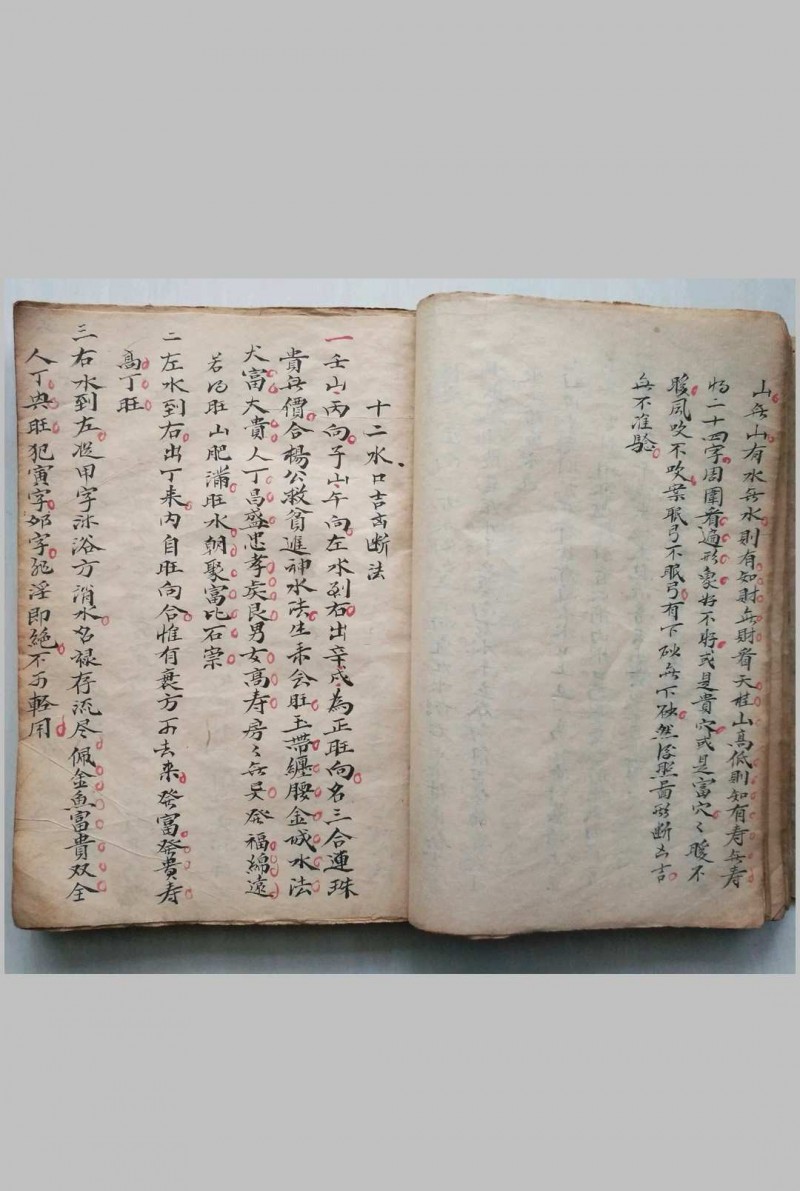 山无山有水无水則有如財无財看天柱山髙低則知有寿无寿
二十四字周圍看遍形象好不好或是貴穴或是富穴〻暖不
暖風吹不吹案眠弓不眠弓有下砂无下砂然後照啚形断吉
无不准驗
十二水口吉凶断法
一壬山丙向子山午向左水到右出辛戌為正旺向名三合蓮珠
貴无價合楊公救貧進神水法生来会旺玉帶纏腰金城水法
大富大貴人丁昌盛忠孝矦良男女髙寿房〻无異發福綿遠
若旺山肥滿旺水朝聚富比石崇
二左水到右出丁未内自旺向合惟有衰方可去来發富發貴寿
髙丁旺
三右水到左従甲字沐浴方消水名禄存流尽佩金魚富貴双全
人丁興旺犯寅字夘字非淫即絶不可輕用